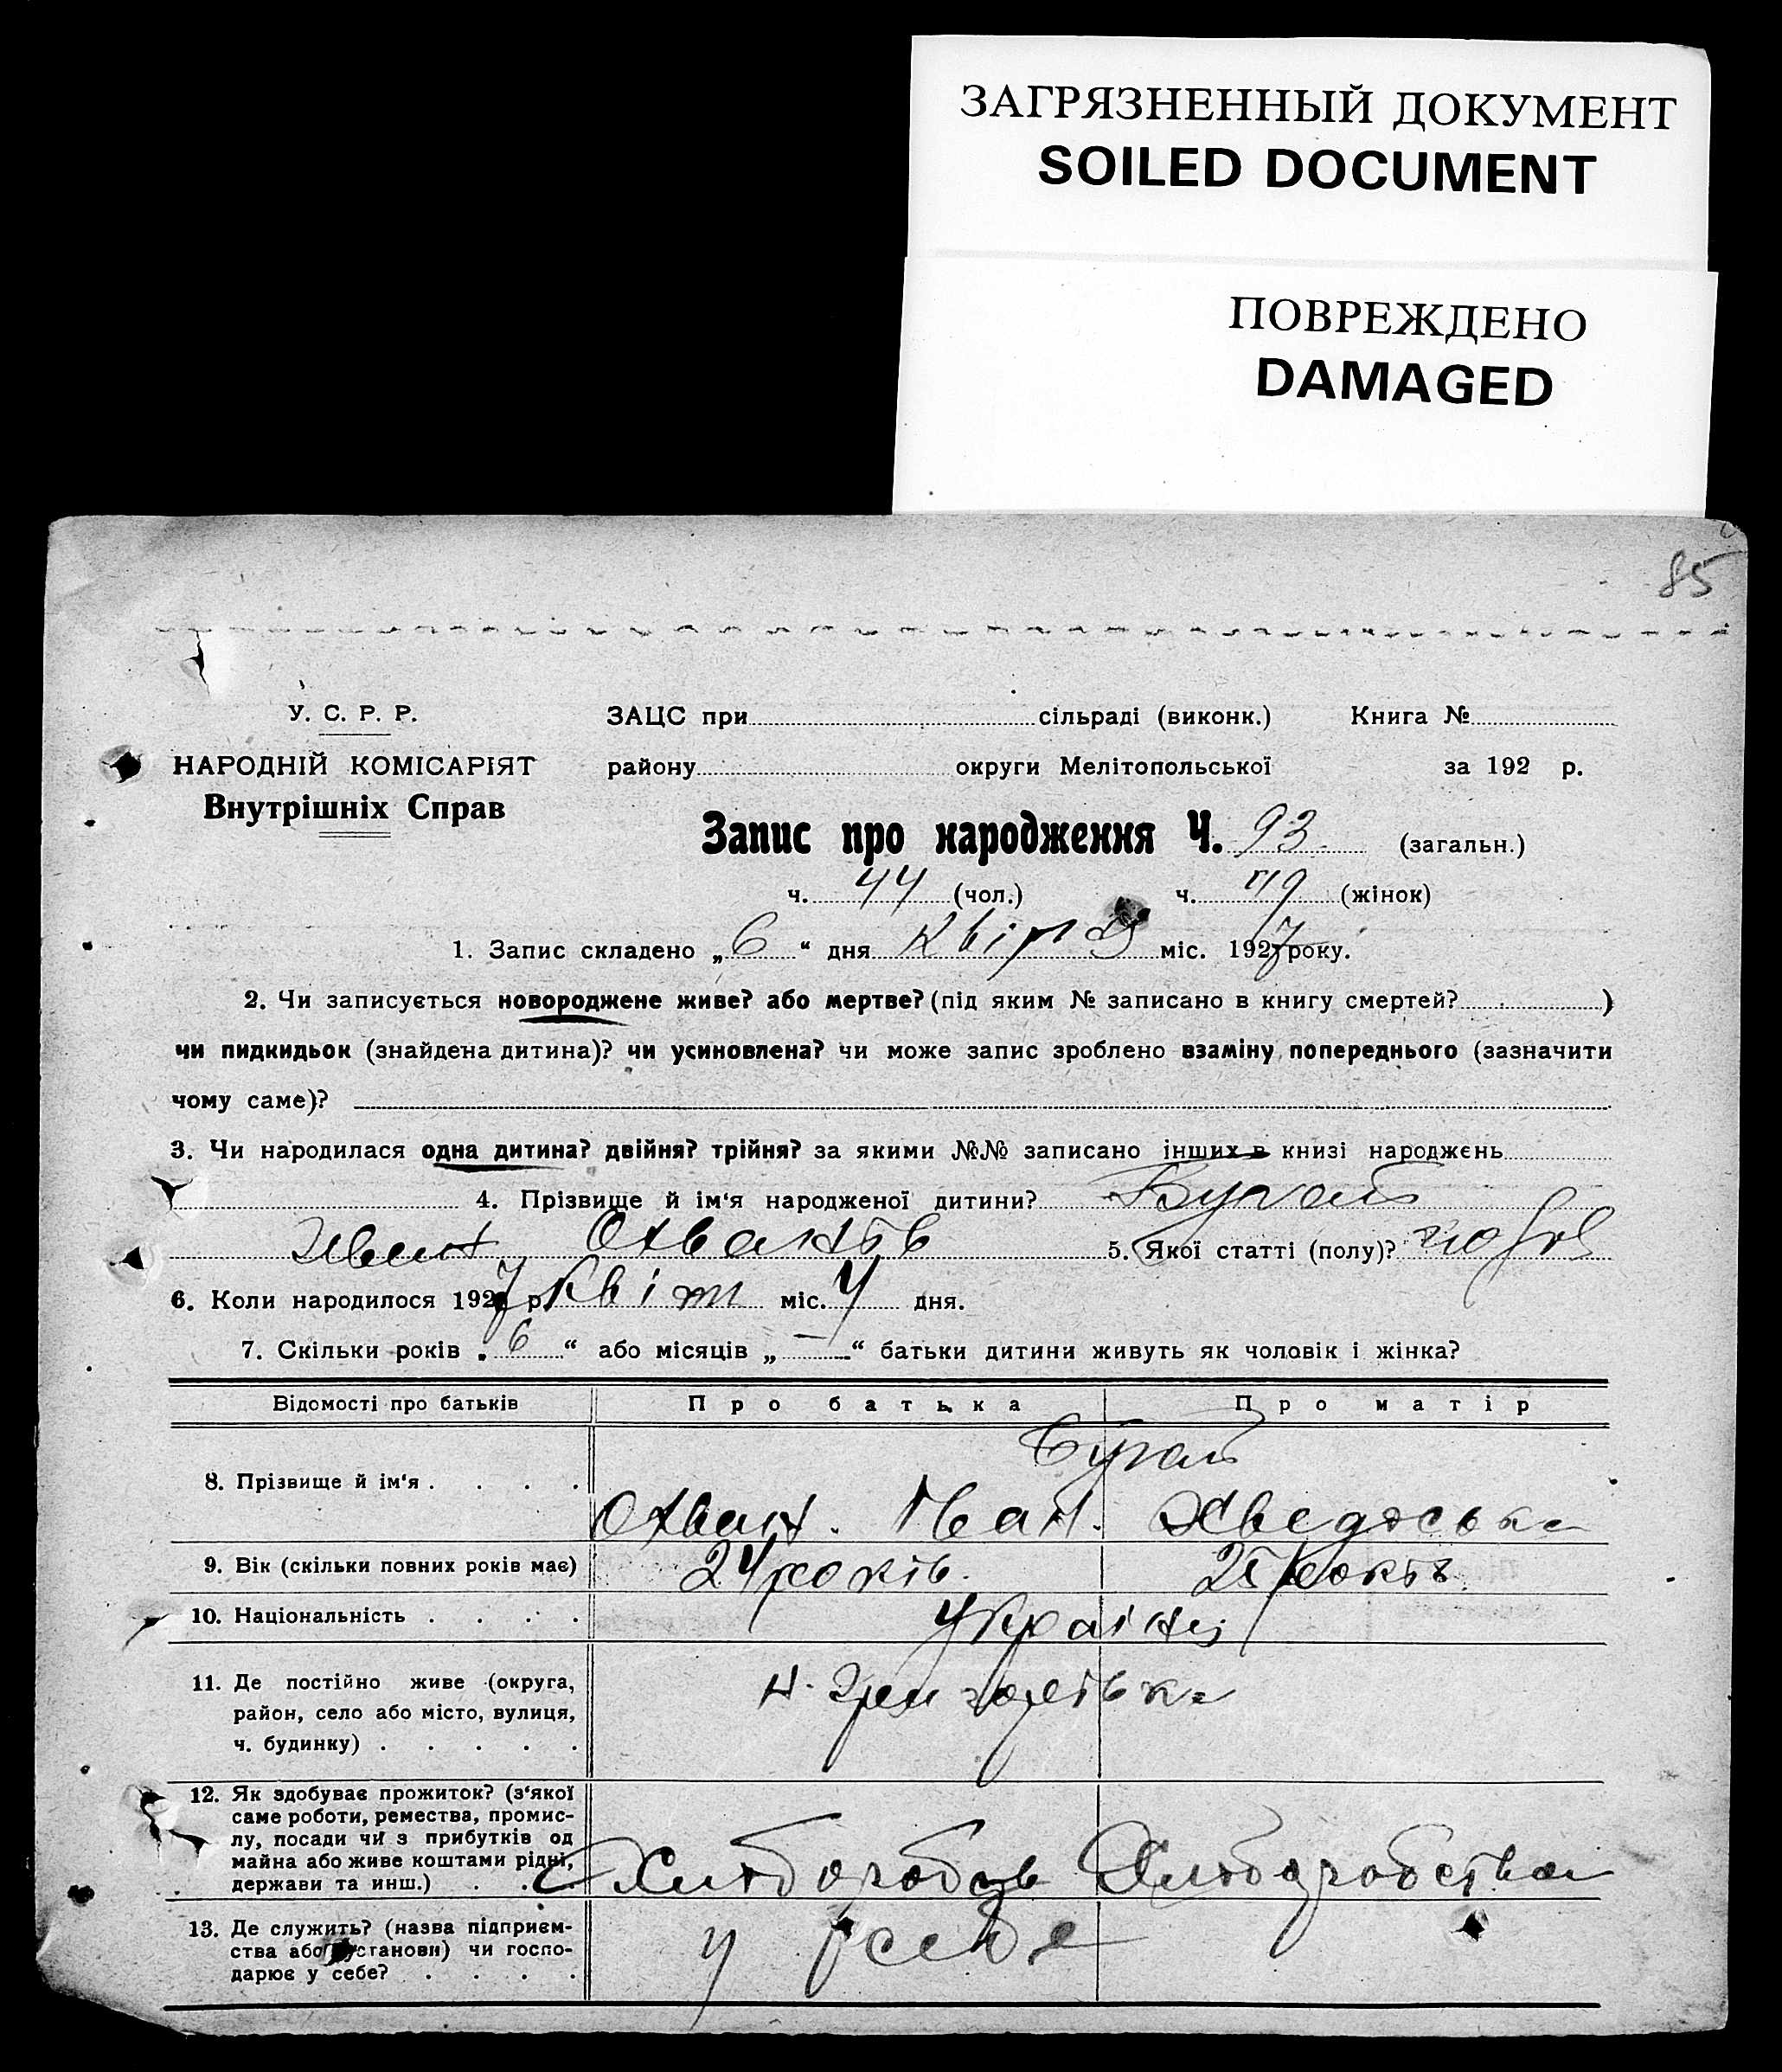 ЗАГРЯЗНЕННЫЙ ДОКУМЕНТ
SOILED DOCUMENT
ПОВРЕЖДЕНО
DAMAGED
85
У. С. Р. Р.
НАРОДНІЙ КОМІСАРІЯТ
Внутрішніх Справ
ЗАЦС при сільраді (виконк.) Книга №
району округи Мелітопольської за 192 р.
Запис про народження Ч. 93 (загальн.)
ч. 44 (чол.) ч. (жінок)
1. Запис складено „6“ дня Квітя міс. 1927 року.
2. Чи записується новороджене живе? або мертве? (під яким № записано в книгу смертей? )
чи пидкидьок (знайдена дитина)? чи усиновлена? чи може запис зроблено взаміну попереднього (зазначити
чому саме)?
3. Чи народилася одна дитина? двійня? трійня? за якими №№ записано інших в книзі народжень
4. Прізвище й ім‘я народженої дитини? Бугай
5. Якої статті (полу)?
6. Коли народилося 1927 р. Квіт міс. 4 дня.
7. Скільки років „6“ або місяців „—“ батьки дитини живуть як чоловік і жінка?
Відомості про батьків Про батька Про матір
Бугай
8. Прізвище й ім‘я . . . .
Іван.
9. Вік (скільки повних років має) 24 років. 25 років
10. Національність . . . . Українц
11. Де постійно живе (округа,
район, село або місто, вулиця,
ч. будинку) . . . . .
12. Як здобуває прожиток? (з‘якої
саме роботи, ремества, промис-
лу, посади чи з прибутків од
майна або живе коштами рідні,
держави та инш.) . . .
13. Де служить? (назва підприєм-
ства або установи) чи госпо-
дарює у себе? . . . .
у себе